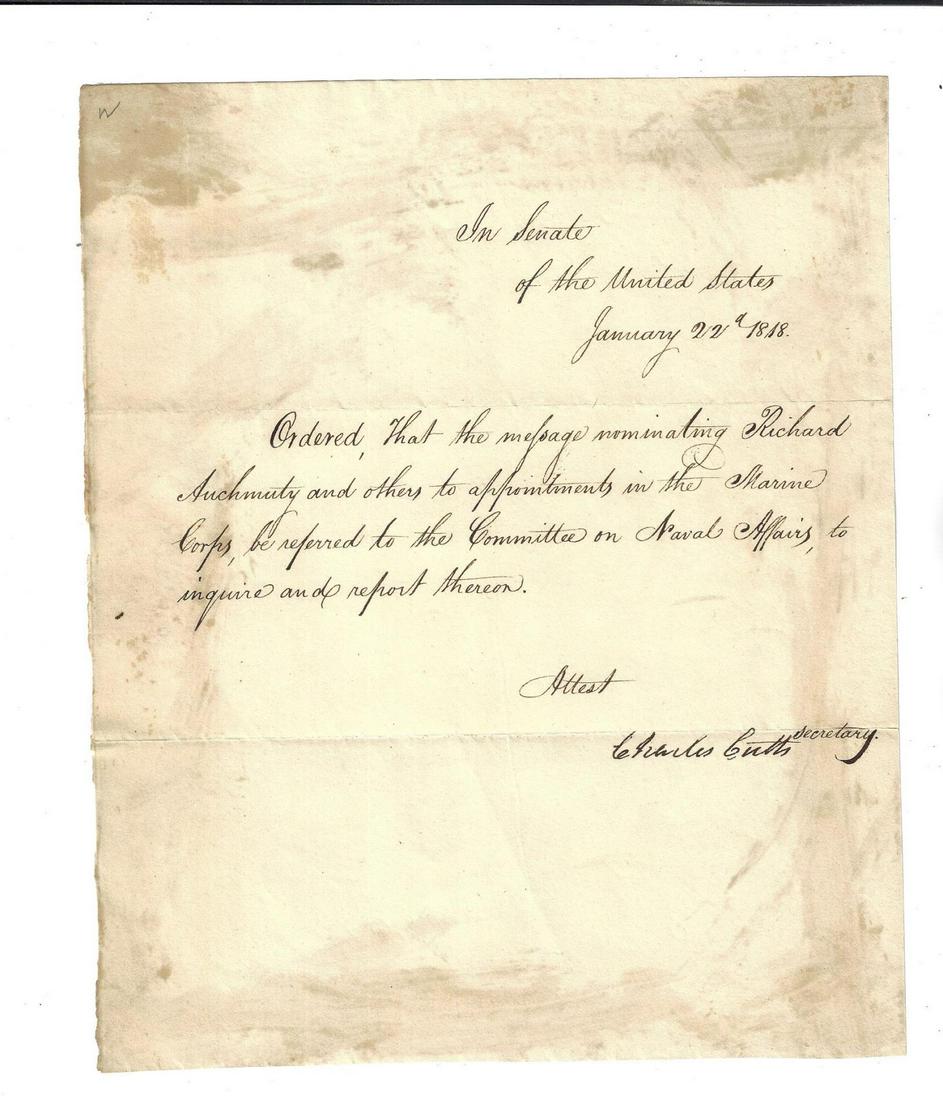 In Senate
of the United States
January 22d 1818.
Ordered, That the meſsage nominating Richard
Auchmuty and others to appointments in the Marine
Corps, be referred to the Committee on Naval Affairs, to
inquire and report thereon.
Attest
Charles Cutts secretary.